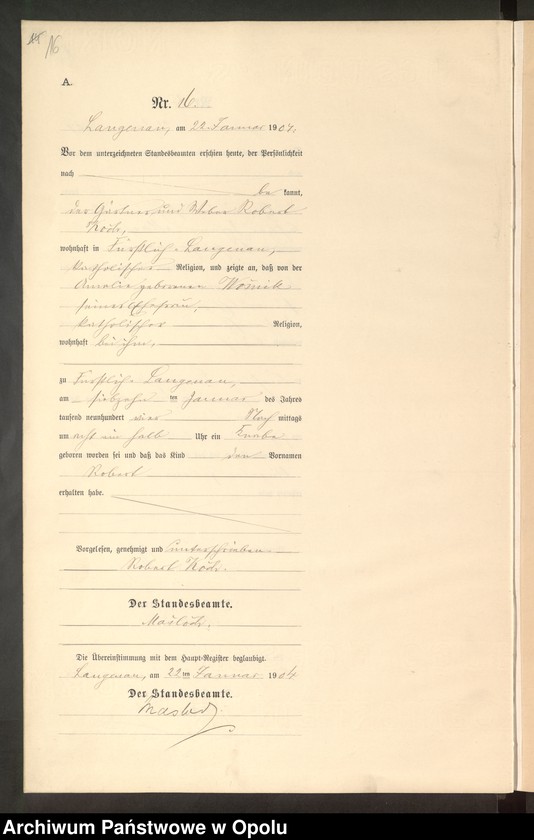 16
A.
Nr. 16
Langenau, am 22 Januar 1904.
Vor dem unterzeichneten Standesbeamten erschien heute, der Persönlichkeit
nach
be kannt,
der Gärtner und Weber Robert
wohnhaft in Fürstlich-Langenau,
katholischer Religion, und zeigte an, daß von der
Amalie geborenen
seiner Ehefrau,
katholischer Religion,
wohnhaft bei ihm,
zu Fürstlich-Langenau,
am siebzehn ten Januar des Jahres
tausend neunhundert vier Nach mittags
um acht ein halb Uhr ein Knabe
geboren worden sei und daß das Kind den Vornamen
Robert
erhalten habe.
Vorgelesen, genehmigt und unterschrieben
Robert
Der Standesbeamte.
Die Übereinstimmung mit dem Haupt-Register beglaubigt.
Langenau, am 22ten Januar 1904
Der Standesbeamte.
Archiwum Państwowe w Opolu